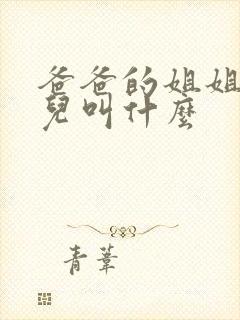 爸爸的姐姐
兒叫什麼
青葦